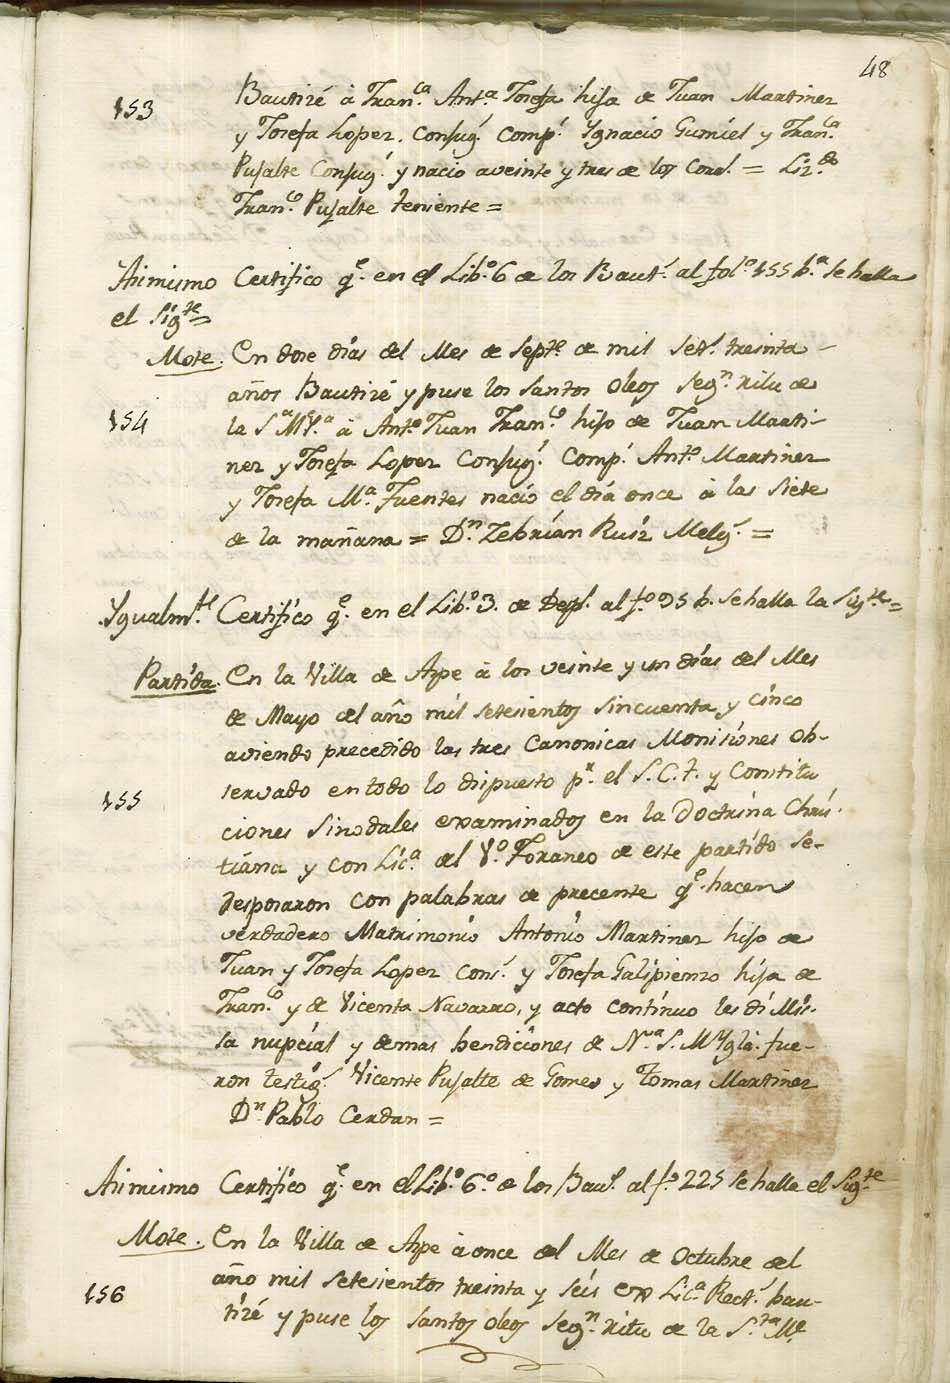 48
153 Bautizé â Fran.ca Ant.a Josefa hija de Juan Martinez
y Josefa Lopez. Conjug.s Comp.s Ygnacio Gumiel y Fran.ca
Pujalte Conjug.s y nacio aveinte y tres de los Cord.s = Liz.do
Fran.co Pujalte teniente =
Asimismo Certifico q.e en el Lib.o 6 de los Baut.s al fol.o 155 b.a se halla
el Sig.te =
Mote. En dose días del Mes de Sept.e de mil Set.s treinta
años Bautizé y puse los Santos Oleos Seg.n ritu de
154 la S.a M.Y.a â Ant.o Juan Fran.co hijo de Juan Marti-
nez y Josefa Lopez Conjug.s Comp.s Ant.o Martinez
y Josefa M.a Fuentes nació el día once â las Siete
de la mañana = D.n Zebrían Ruiz Melg.s =
Ygualm.te Certifico q.e en el Lib.o 3. de Desp.s al f.o 95 b. se halla la Sig.te =
Partída. En la Villa de Aspe â los veinte y un días del Mes
de Mayo del año mil setesientos sincuenta y cinco
aviendo precedido las tres Canonicas Monisiónes Ob-
servado en todo lo dispuesto p.r el S.C.t. y Constitu
155 ciones Sinodales examinados en la Doctrina Chrís-
tiana y con Líc.a del V.o Foraneo de este partído se-
desposaron con palabras de precente q.e hacen
verdadero Matrimonío António Martinez hijo de
Juan y Josefa Lopez Cons.s y Josefa Galipienso híja de
Fran.co y de Vicenta Navarro, y acto contínuo les dí Mís-
sa nupcíal y demas bendiciones de N.ra S. M Ygla. fue-
ron testig.s Vicente Pujalte de Gomes y tomas Martínez
D.n Pablo Cerdan =
Asimismo Certífico q.e en el Lib.o 6.o de los Bau.s al f.o 225 se halla el Sig.te
Mote. En la Villa de Aspe â once del Mes de Octubre del
año mil setesientos treinta y seis ex Líc.a Rect.s bau-
156 tizé y puse los santos oleos seg.n ritu de la S.ta M.e